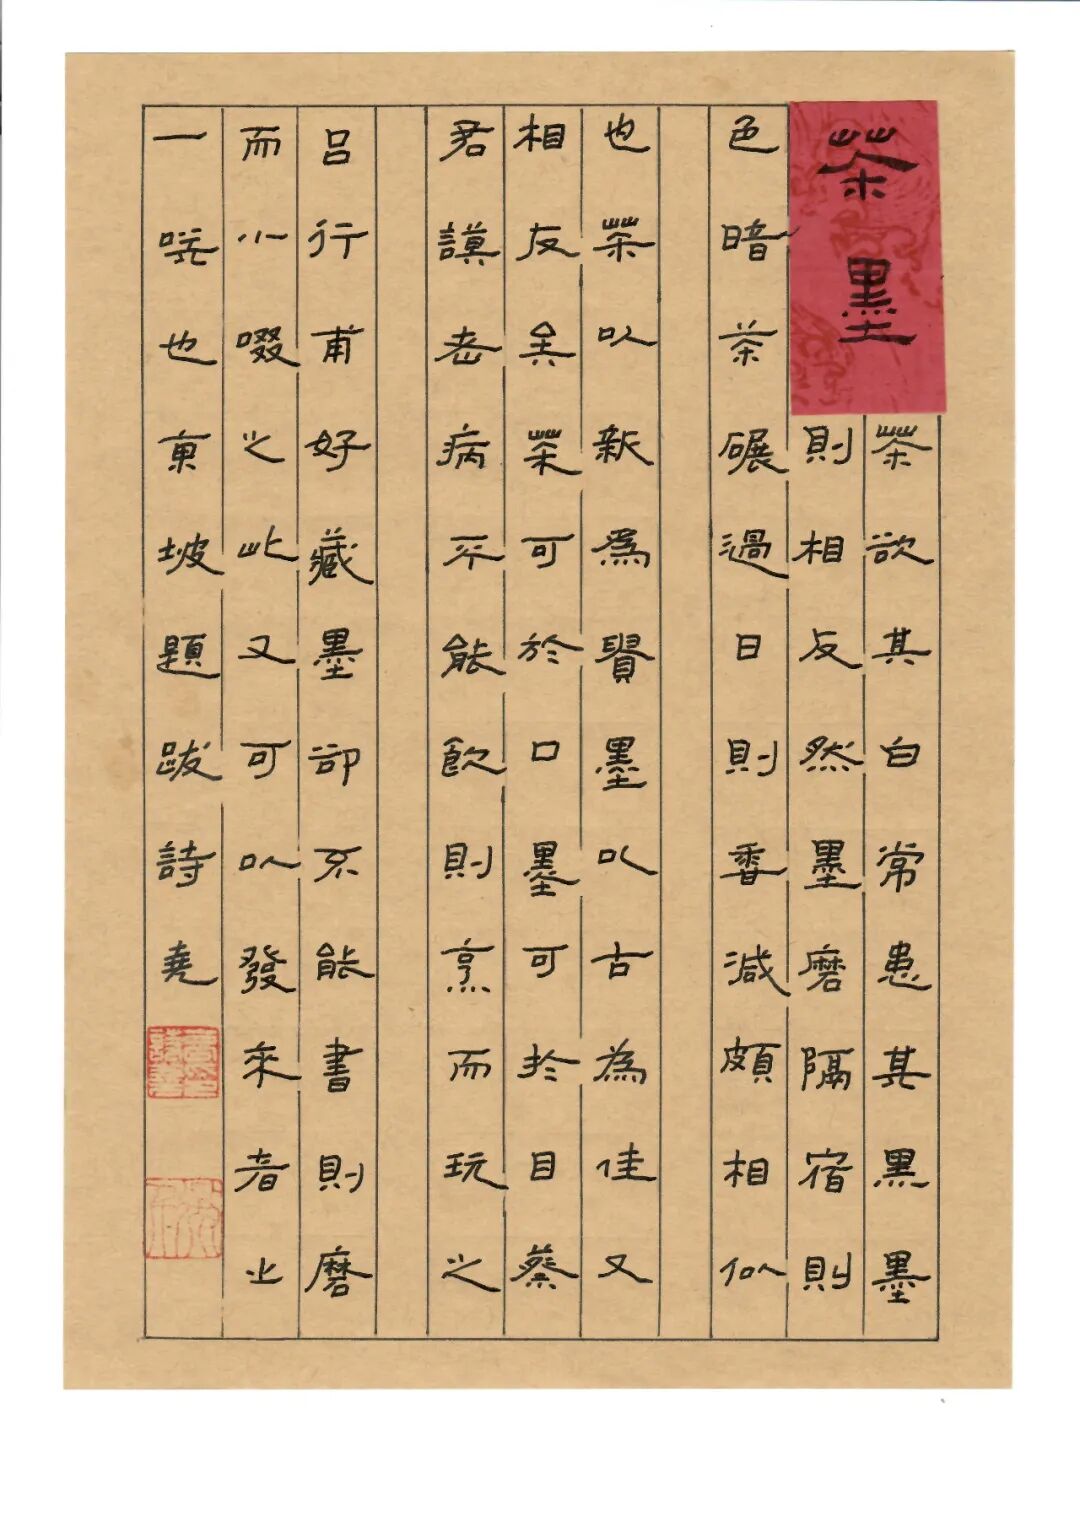 茶墨
茶欲其白常患其黑墨
則相反然墨磨隔宿則
色暗茶碾過日則香減頗相似
也茶以新爲貴墨以古為佳又
相反矣茶可於口墨可於目蔡
君謨老病不能飲則烹而玩之
呂行甫好藏墨卻不能書則磨
而小啜之此又可以發來者之
一咲也東坡題跋詩堯